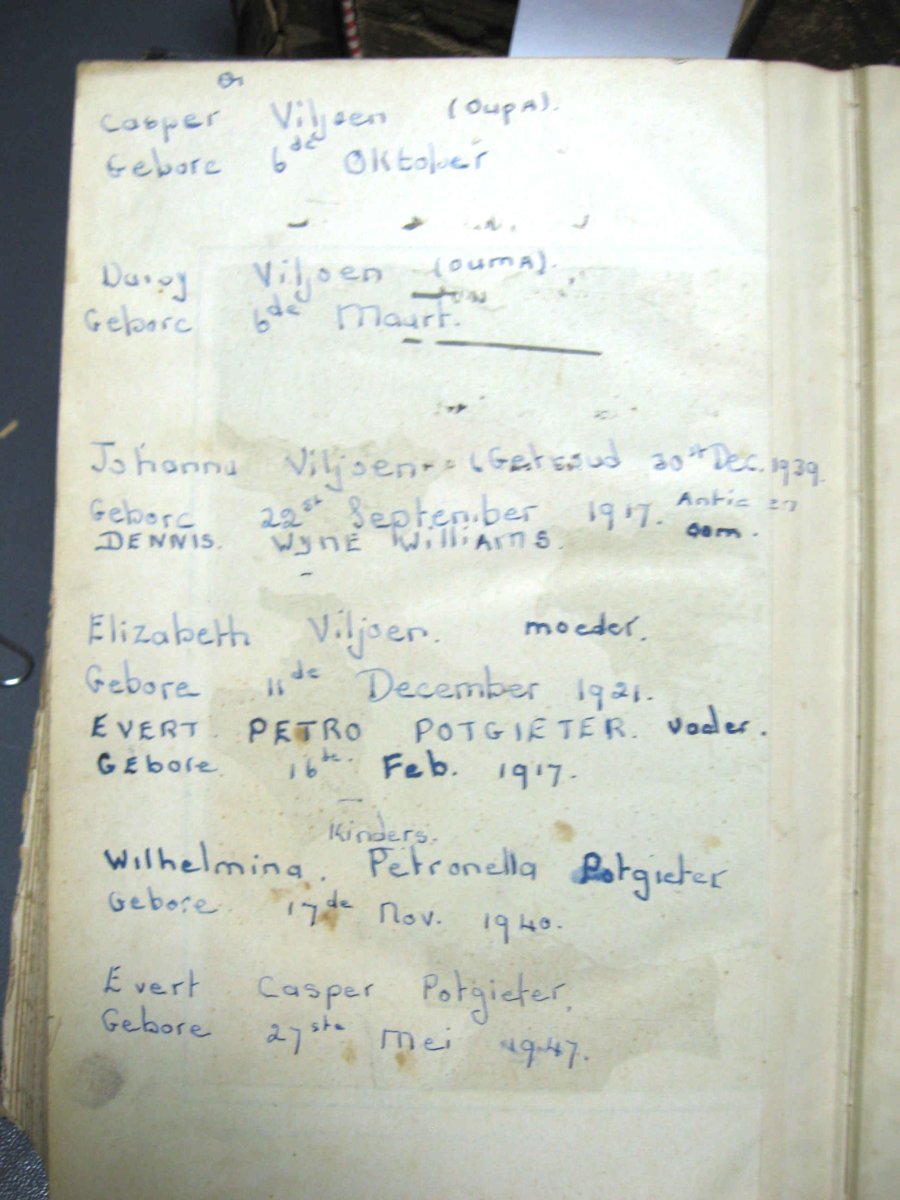 Casper Viljoen (OupA).
Gebore 6de Oktober
Daisy Viljoen (OumA).
Gebore 6de Maart.
Johanna Viljoen (Getroud 30st Dec. 1939.
Gebore 22st September 1917. Antie en
DENNIS. WYNE WilliAms. oom.
Elizabeth Viljoen. moeder.
Gebore 11de December 1921.
EVERT PETRO POTGIETER. vader.
GEbore 16de Feb. 1917.
Kinders.
Wilhelmina. Petronella Potgieter
Gebore 17de Nov. 1940.
Evert Casper Potgieter.
Gebore 27ste Mei 1947.